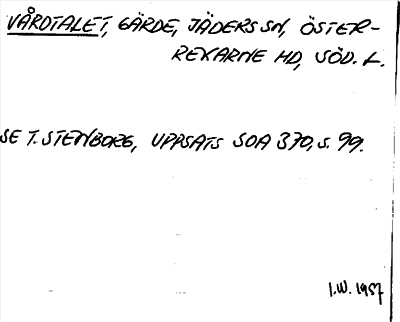 VÅRDTALET, GÄRDE, JÄDERS SN, ÖSTER-
REKARNE HD, SÖD. L.
SE T. STENBORG, UPPSATS SOA 370, S. 99.
I.W. 1957